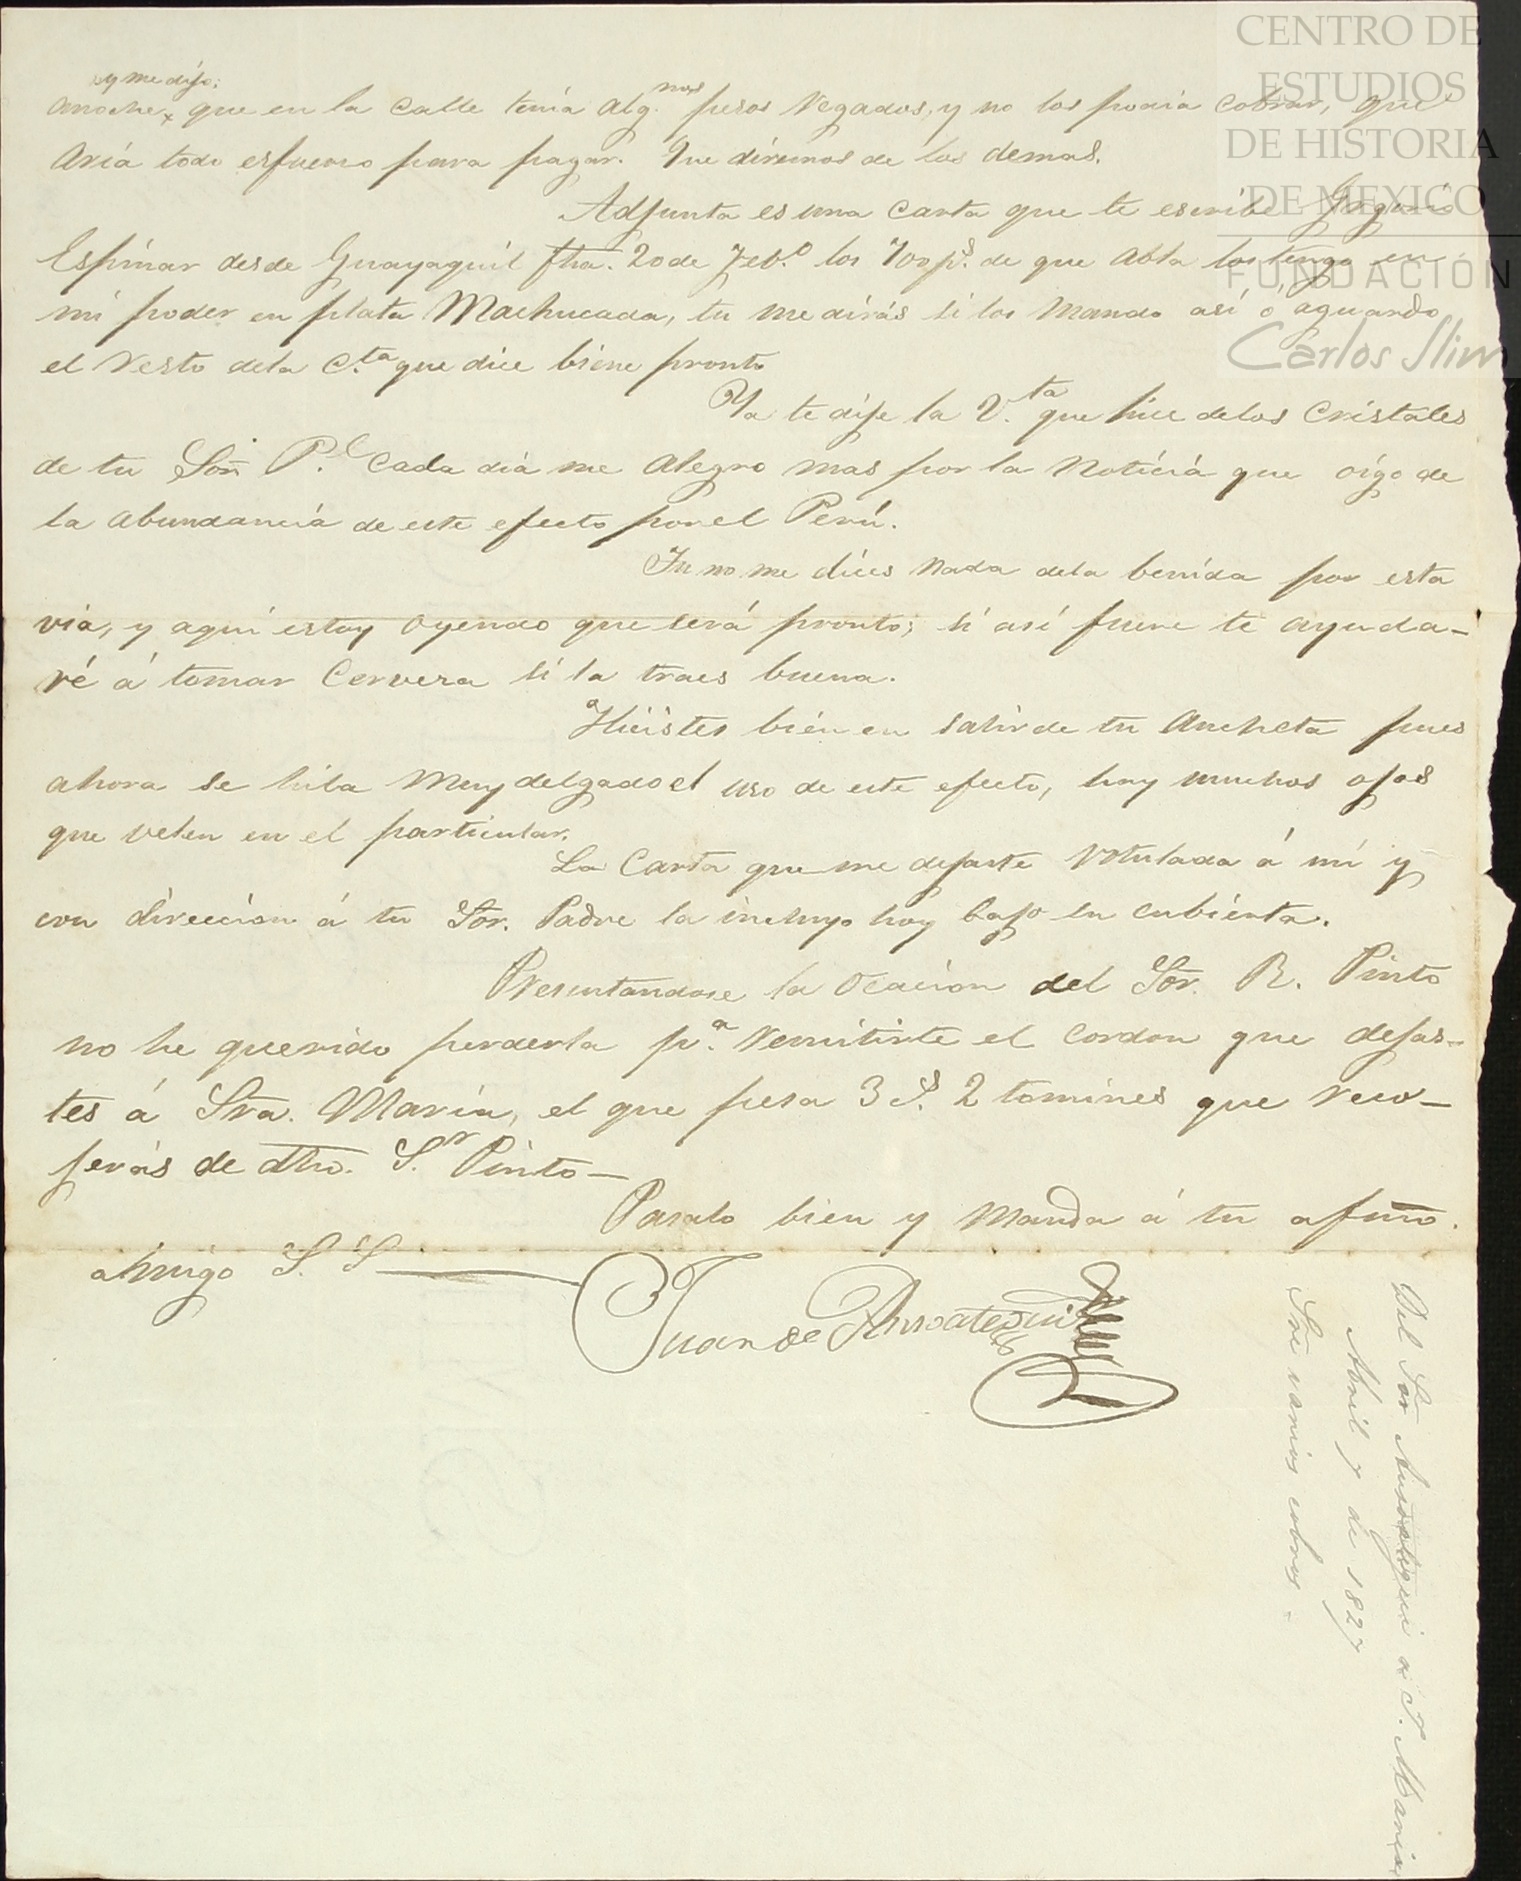 y me dijo;
anoche x que en la calle tenía alg.nos pesos regados, y no los podia cobrar, que
aria todo esfuerso para pagar. Que diremos de los demas.
Adjunta es una carta que te escribe Gregorio
Espinar desde Guayaquil fha. 20 de Feb.o los 700 p.s de que abla los tengo en
mi poder en plata Machucada, tu me dirás si los mando así ó aguardo
el resto dela c.ta que dice biene pronto
Ya te dije la V.ta que hice delos Cristales
de tu Sor. P.e Cada dia me alegro mas por la noticiá que oigo de
la abundanciá de este efecto por el Perú.
Tu no me dices nada dela benida por esta
via, y aqui estoy oyendo que será pronto; si así fuere te ayuda-
ré á tomar Cerveza si la traes buena.
Hicistes bien en salir de tu Ancheta pues
ahora se hila muy delgado el uso de este efecto, hay muchos ojos
que velen en el particular.
La Carta que me dejaste rotulada á mi y
con direccion á tu Sor. Padre la incluyo hoy bajo su cubierta.
Presentandose la ocacion del Sor. R. Pinto
no he querido perderla p.a remitirte el cordon que dejas-
tes á Sra. Maria, el que pesa 3 2 tomines que reco-
jerás de dho. S.r Pinto—
Pasalo bien y manda á tu afmo.
amigo S. S
Juan de Ansoategui
Del Sor Ansoategui a J. Maria
Abril 7 de 1827
Sre varios cobros =
CENTRO DE
ESTUDIOS
DE HISTORIA
DE MEXICO
FUNDACIÓN
Carlos Slim